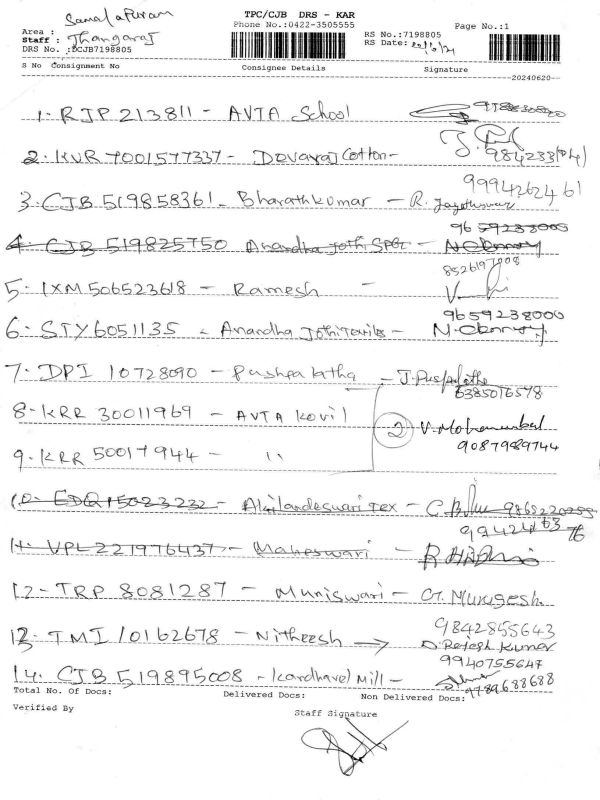 TPC/CJB DRS - KAR
Phone No.:0422-3505555
Page No.:1
Area : Samalapuram
Staff : Thangaraj
DRS No. :DCJB7198805
RS No.:7198805
RS Date: 20/6/24
S No Consignment No Consignee Details Signature
20240620
1. RJP 213811 - AVTA School
2. KUR 7001577337 - Devaraj Cotton - 984233
3. CJB 519858361 - Bharathkumar - R. 9994262461
4. CJB 519825750 Anandha Jothi - 9659238000
5. IXM 506523618 - Ramesh - 8526197908
6. STY 6051135 - Anandha Jothi - 9659238000
7. DPI 10728090 - Pushpalatha - J. Puspalatha 6385016578
8. KRR 30011969 - AVTA Kovil
2 V. Mohanambal
9. KRR 50017944 - " 9087989744
10. EDQ 15023232 - Akilandeswari Tex - C.
11. VPL 221976437 - Maheswari -
12. TRP 8081287 - Muniswari - G. Murugesh
13. TMI 10162678 - Nitheesh → 9842855643 D. Rajesh Kumar
14. CJB 519895008 - Kandhavel Mill - 9940755647 9789688688
Total No. Of Docs: Delivered Docs: Non Delivered Docs:
Verified By
Staff Signature